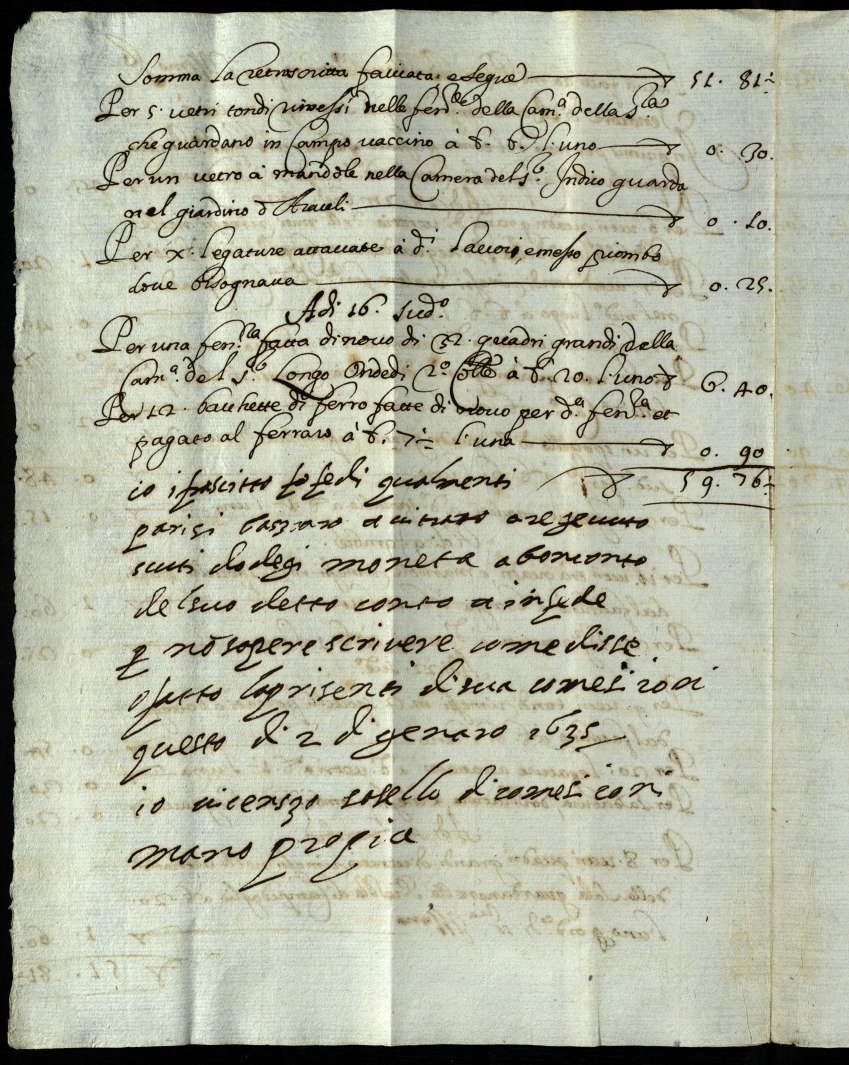 Somma La retroscritta facciata e segue 51. 81:
Per 5. vetri tondi rimessi nelle fen.re della Cam.a della S.la
che guardano in Campo vaccino à b. 6. l'uno 0. 30.
Per un vetro à mandole nella Camera del S.r Indico guarda
nel giardino d Araceli 0. 10.
Per X. legature attaccate à d.i lavori, e messo piombo
dove bisognava 0. 25.
Adi 16. sud.o
Per una fen.ra fatta di novo di 32. quadri grandi della
Cam.a del S.r Longo Ondedi 2.o à b. 20. l'uno 6. 40.
Per 12. bacchette di ferro fatte di novo per d.a fen.ra et
pagato al ferraro à b. 7:- l'una 0. 90
io fo fedi qualmenti 59. 76:
parisi vitraro a regeuuto
scuti dodegi moneta a bonconto
del suo detto conto a in fede
p nō sapere scrivere come disse
o fatto la prisenti di sua comesioni
questo di 2 di genaro 1635
io vicenszo di comesioni
mano propia
Per 8.
1. 60.
51. 81